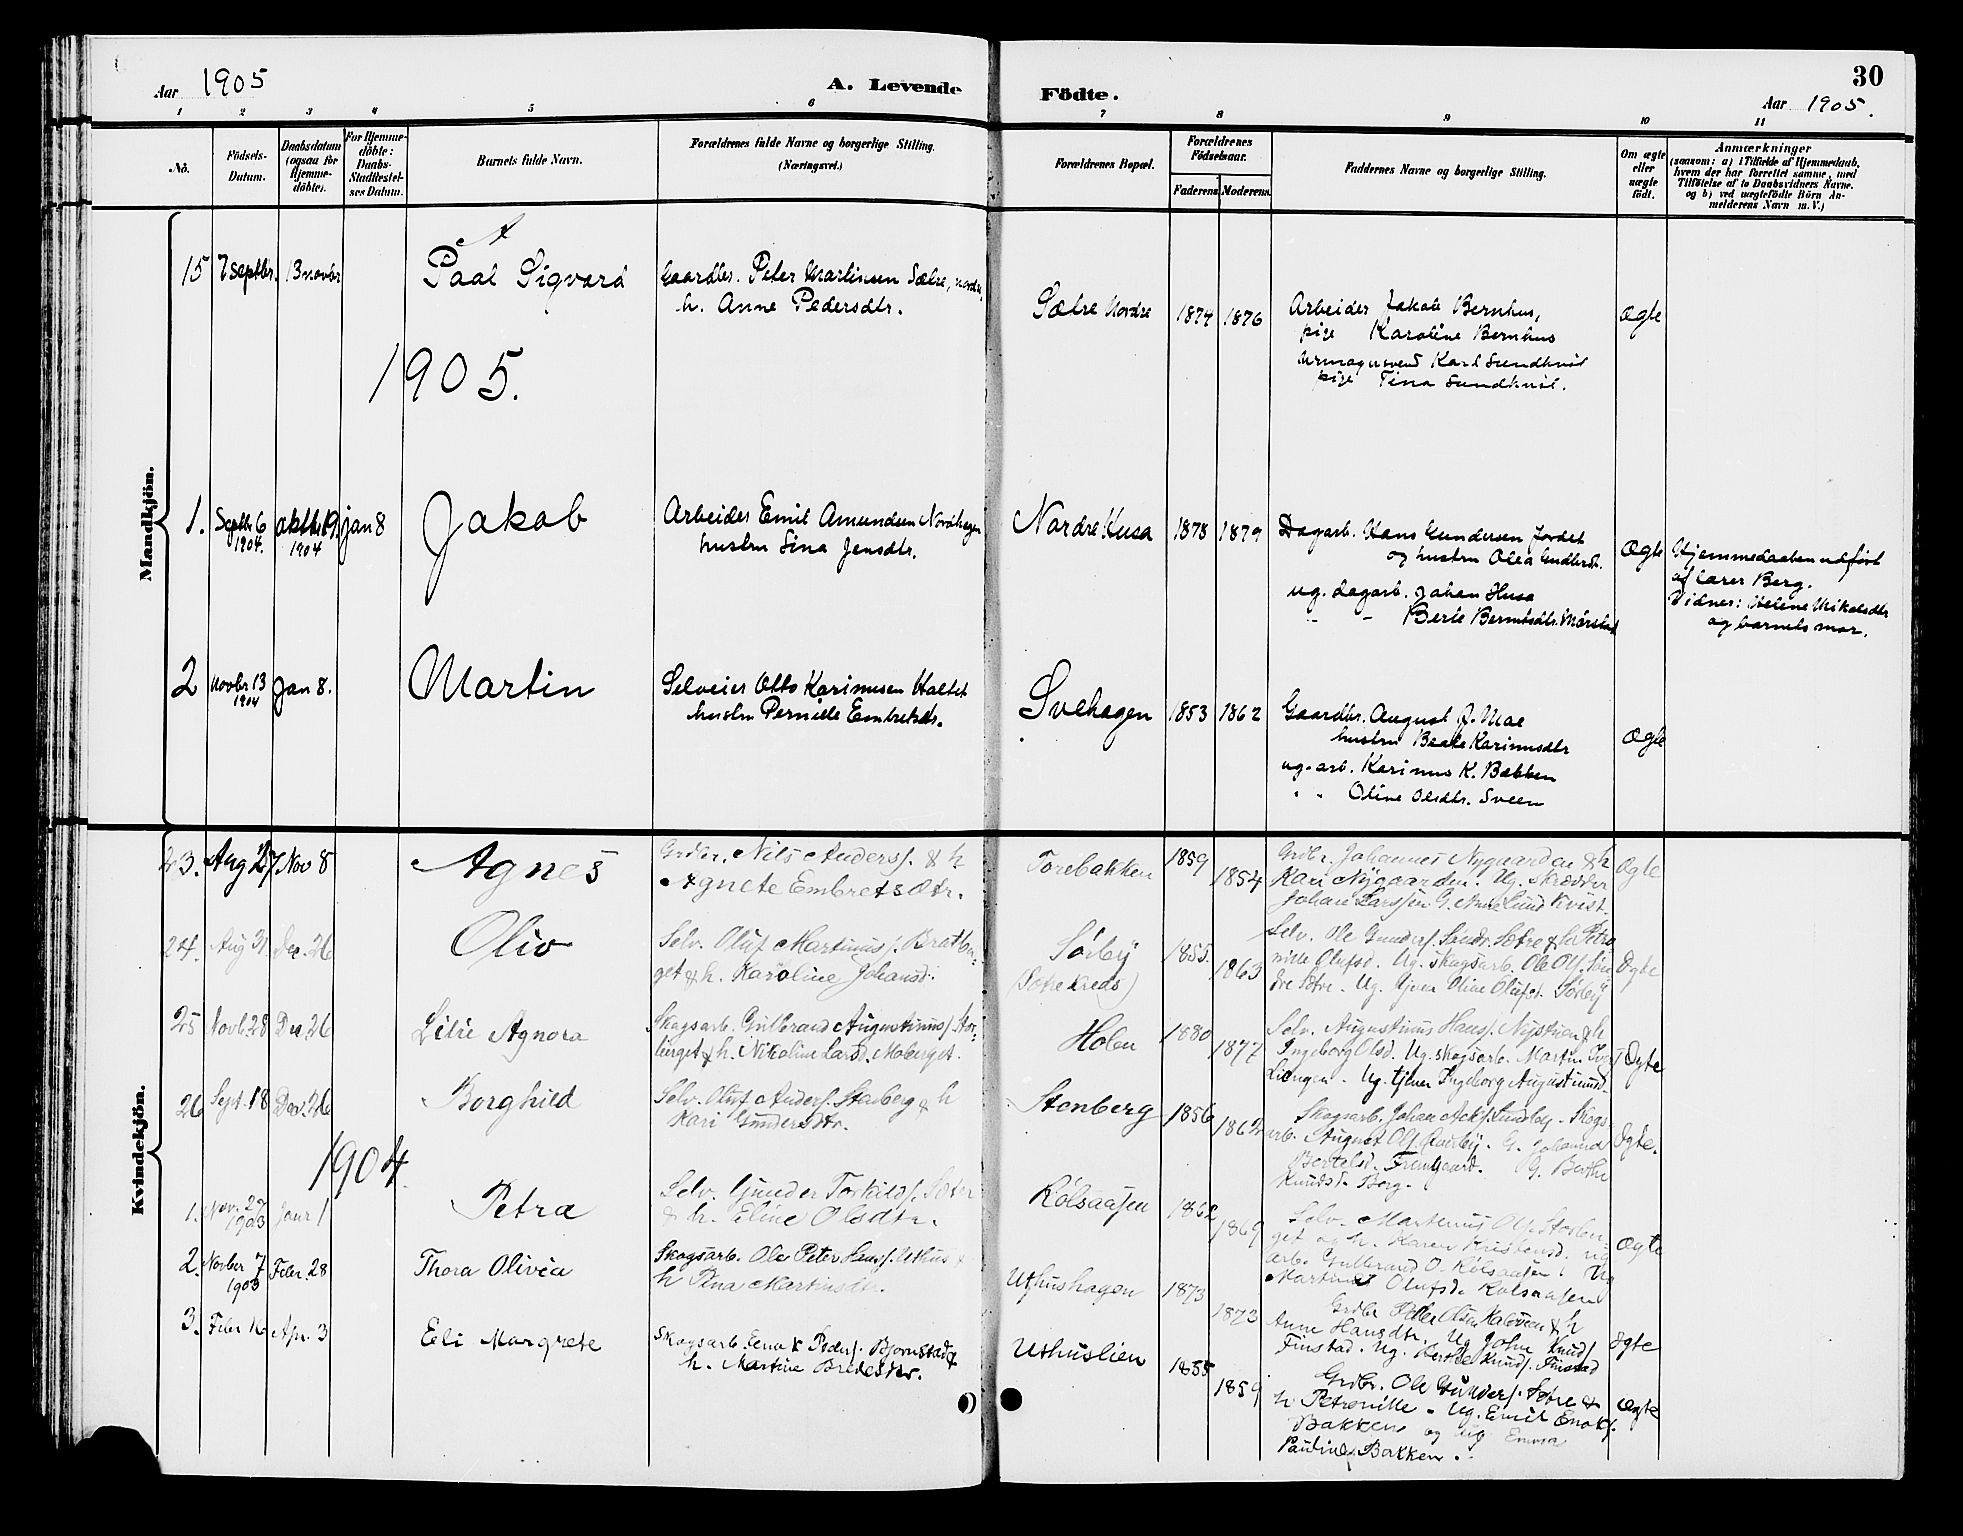 Aar 1905
A. Levende Födte.
30
Aar 1905.
1 2 3 4 5 6 7 8 9 10 11
No.
Födsels-
Datum.
Daabsdatum
(ogsaa for
Hjemme-
döbte).
For Hjemme-
döbte:
Daabs-
Stadfæstel-
ses Datum.
Barnets fulde Navn.
Forældrenes fulde Navne og borgerlige Stilling.
(Næringsvei.)
Forældrenes Bopæl.
Forældrenes
Födselsaar.
Faderens. Moderens.
Faddernes Navne og borgerlige Stilling.
Om ægte
eller
uægte
födt.
Anmærkninger
(saasom: a) i Tilfælde af Hjemmedaab,
hvem der har forrettet samme, med
Tilföielse af to Daabsvidners Navne.
og b) ved uægtefödte Börn An-
melderens Navn m. V.)
Mandkjön.
15 7 septbr. 13 novbr
Paal Sigvard
Gaardbr. Peter Martinsen Sætre, nordre,
h. Anne Pedersdtr.
Sætre Nordre
1874 1876
Arbeider Jakob Bernhus,
pige Karoline Bernhus
Urmagersvend Karl Sundkvist
pige Tina Sundkvist.
Ægte
1905.
1. Septbr 6
1904.
oktbr 19.
1904
jan 8
Jakob
Arbeider Emil Amundsen Nordhagen
hustru Lina Jensdtr.
Nordre Husa
1878 1879
Dagarb. Hans Gundersen Jordet
og hustru Olea
ug. dagarb. Johan Husa
" - Berte Berntsdtr. Mørstad
Ægte
Hjemmedaaben udført
af lærer Berg.
Vidner: Helene Mikelsdtr
og barnets mor.
2 Novbr 13
1904
Jan 8.
Martin
Selveier Otto Karinusen Haltet
hustru Pernille Embretsdtr.
Svehagen
1853 1862
Gaardbr. August J. Moe
hustru Beate Karinusdtr
ug. arb. Karinus K. Bakken
" " Oline Olsdtr. Sveen
Ægte
Kvindekjön.
23. Aug 27 Nov 8
Agnes
Grdbr. Nils Anders. & h
Agnete Embretsdtr.
Torebakken
1859 1854
Grdbr. Johannes Nygaarden & h
Kari Nygaarden. Ug. Skrædder
Johan Larssen G. Anne Lund Kvist.
Ægte
24. Aug 31 Dec. 26
Oliv
Selv. Oluf Martinus. Bratber-
get & h. Karoline Johansd.
Sørby
(Sætre Kreds)
1855. 1863
Selv. Ole Gunders. Søndr. Sætre & h Petro
nille Olufsd. Ug. skogsarb. Ole Ols. Søn
dre Sætre. Ug. tjener Oline Olufsd. Sørby
Ægte
25 Novb. 28 Dec. 26
Lilie Agnora
Skogsarb. Gulbrand Augustinus. Stor-
berget & h. Nikoline Larsd. Moberget.
Holen
1880 1877
Selv. Augustinus Hans. Nystuen & h
Ingeborg Olsd. Ug. skogsarb. Martin
Liengen - Ug. tjener Ingeborg Augustinusd.
Ægte
26 Sept. 18 Dec. 26
Borghild
Selv. Oluf Anders. Stenberg & h
Kari Gundersdtr.
Stenberg
1856 1862
Skogsarb. Johan Lundby - Skogs-
arb. August Ols. - G. Johanne
Bertelsd. Fremgaard. G. Berthe
Knudsd. Berg.
Ægte.
1904.
1. Nov. 27
1903
Janr 1
Petra
Selv. Gunder Torkilds. Sæter
& h. Eline Olsdtr.
Kölsaasen
1862 1869
Selv. Martinus Ols. Storber-
get og h. Karen Kristensd. Ug
arb. Gulbrand O. Kölsaasen. Ug
Martine Olufsd. Kolsaasen
Ægte
2. Novber 7
1903
Febr. 28
Thora Olivia
Skogsarb. Ole Peter Hans. Uthus &
h Pina Martinsdtr.
Uthushagen
1873 1873
Grdbr Olsen & h
Anne Hansdtr. Ug John Knuds.
Finstad. Ug. Berthe Knuds. Finstad
Ægte
3. Febr 16 Apr. 3
Eli Margrete
Skogsarb. Enok Peders. Bjørnstad &
h. Martine Bredesdtr.
Uthuslien
1855 1859
Grdbr. Ole Gunders. Sætre &
h. Petronille - Ug. Emil Enoks.
Bakken og Ug Emma
Pauline Bakken.
Ægte